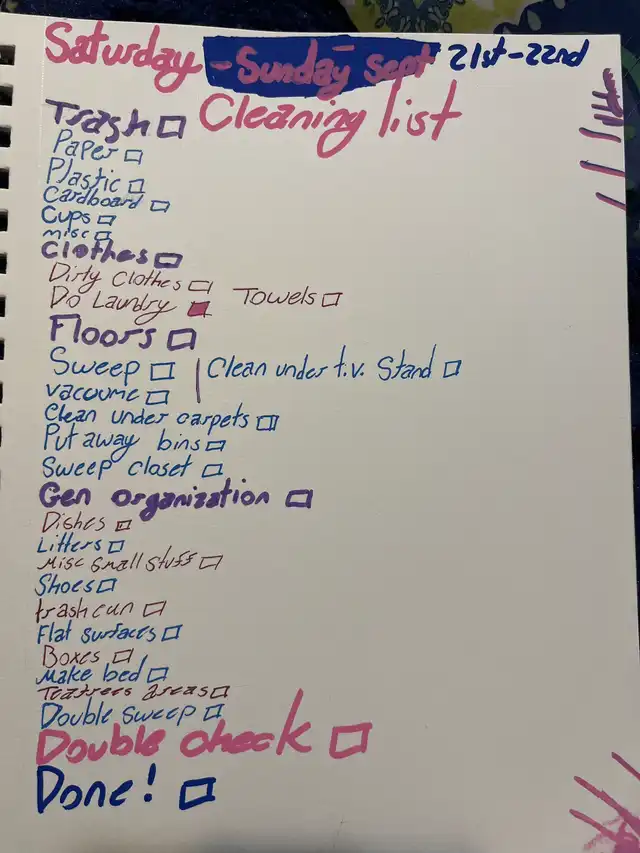 Saturday - Sunday Sept 21st-22nd
Cleaning list
Trash
Paper
Plastic
Cardboard
Cups
misc
Clothes
Dirty Clothes
Do Laundry Towels
Floors
Sweep | Clean under t.v. Stand
vacuume
Clean under carpets
Put away bins
Sweep closet
Gen organization
Dishes
Litters
Misc small stuff
Shoes
trashcan
Flat surfaces
Boxes
Make bed
Teatrees areas
Double sweep
Double check
Done!